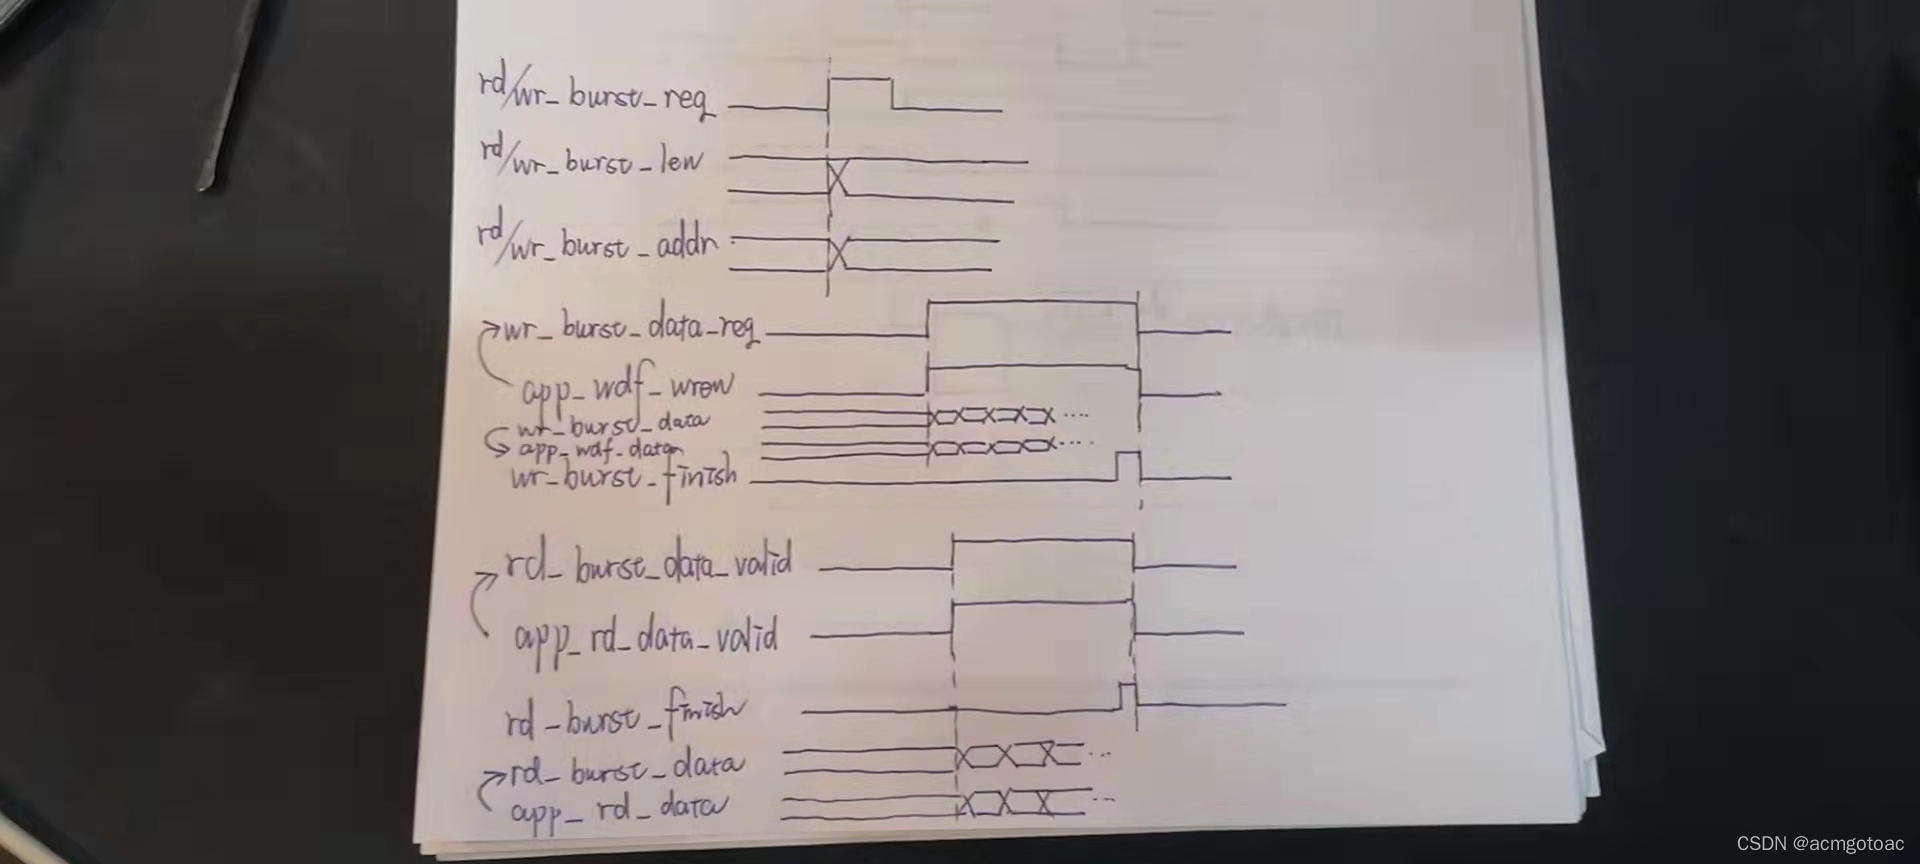 rd/wr_burst_req
rd/wr_burst_len
rd/wr_burst_addr
wr_burst_data_req
app_wdf_wren
wr_burst_data ....
app_wdf_data ....
wr_burst_finish
rd_burst_data_valid
app_rd_data_valid
rd_burst_finish
rd_burst_data ...
app_rd_data ...
CSDN @acmgotoac